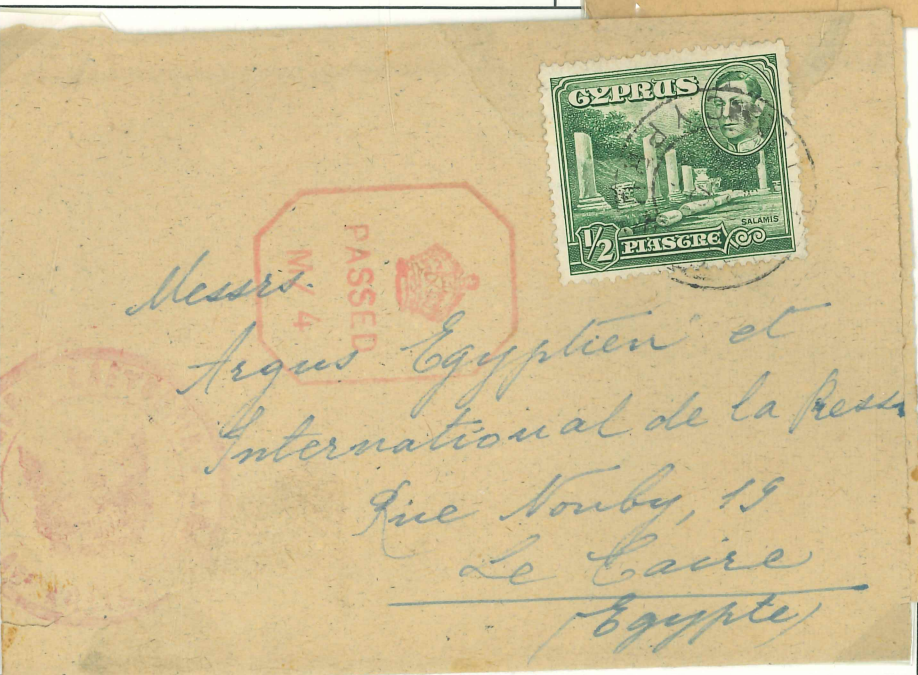 CYPRUS
SALAMIS
1/2 PIASTRE
PASSED
M/4
Messrs.
Argus Egyptien et
International de la Presse
Rue Nouby, 19
Le Caire
(Egypte)